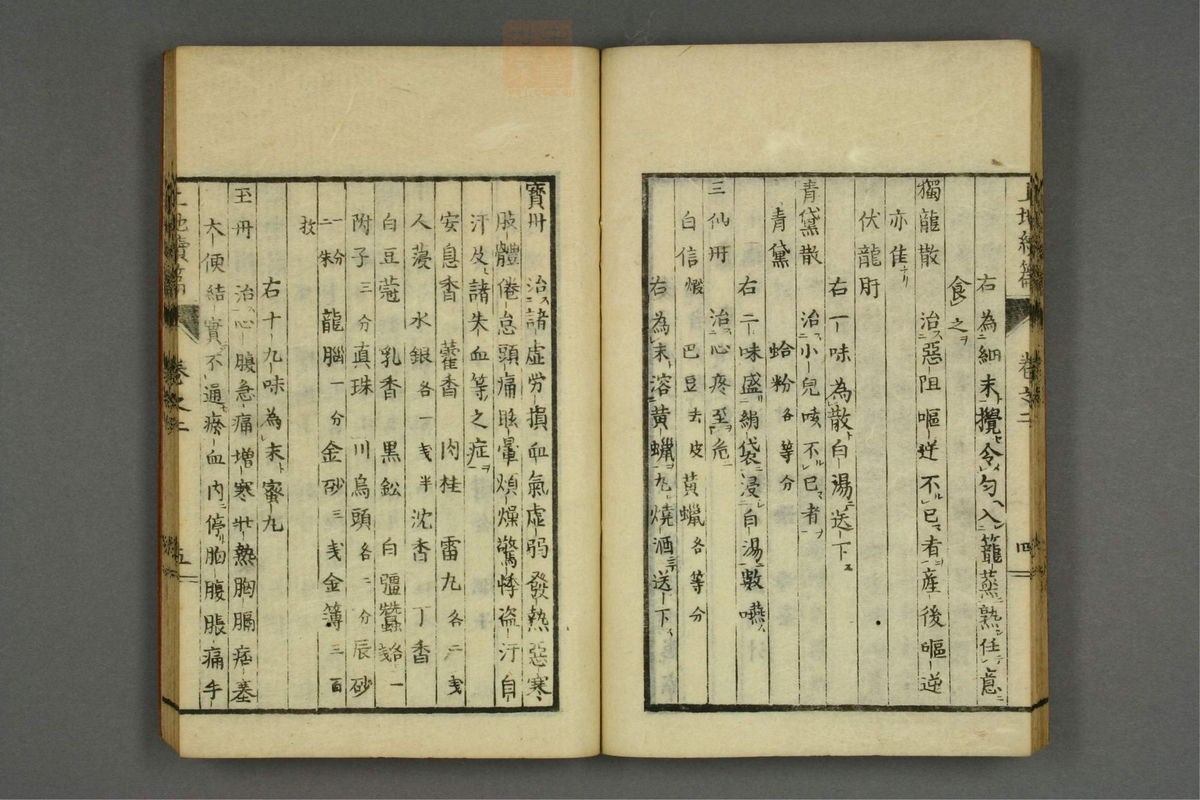 右為細末攪令勻入籠蒸熟任意
食之ヲ
獨龍散 治惡阻嘔逆不已者產後嘔逆
亦佳ナリ
伏龍肝
右一味為散白湯送下
青黛散 治小兒咳不已者
青黛 蛤粉各等分
右二味盛絹袋浸白湯數嚥
三仙丹 治心疼至危
白信煅 巴豆去皮 黃蠟各等分
右為末溶黃蠟丸燒酒送下
卷之二 四
寶丹 治諸虛勞損血氣虛弱發熱惡寒
肢體倦怠頭痛眩暈煩燥驚悸盜汗自
汗及諸失血等之症
安息香 藿香 肉桂 雷丸各二戔
人薓 水銀各一戔半 沈香 丁香
白豆蔻 乳香 黑鈆 白殭蠶
附子三分 真珠 川烏頭各二分 辰砂
龍腦一分 金砂三戔 金簿三百
右十九味為末蜜丸
玉丹 治心腹急痛增寒壯熱胸膈痞塞
大便結實不通瘀血內停胸腹脹痛手
卷之二 五